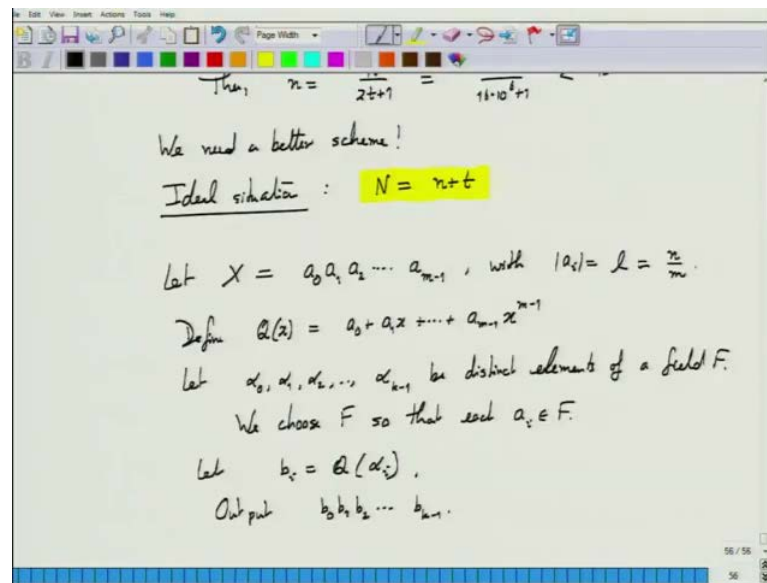 Edit View Insert Actions Tools Help
Page Width
Then, n = 2t+1 = 16·10⁶+1 <
We need a better scheme!
Ideal situation : N = n+t
Let X = a₀ a₁ a₂ .... a_{m-1} , with |aᵢ| = l = n/m .
Define Q(x) = a₀ + a₁x + .... + a_{m-1} x^{m-1}
Let α₀, α₁, α₂, .., α_{k-1} be distinct elements of a field F.
We choose F so that each aᵢ ∈ F.
Let bᵢ = Q(αᵢ) .
Output b₀ b₁ b₂ ... b_{k-1} .
56 / 56
56